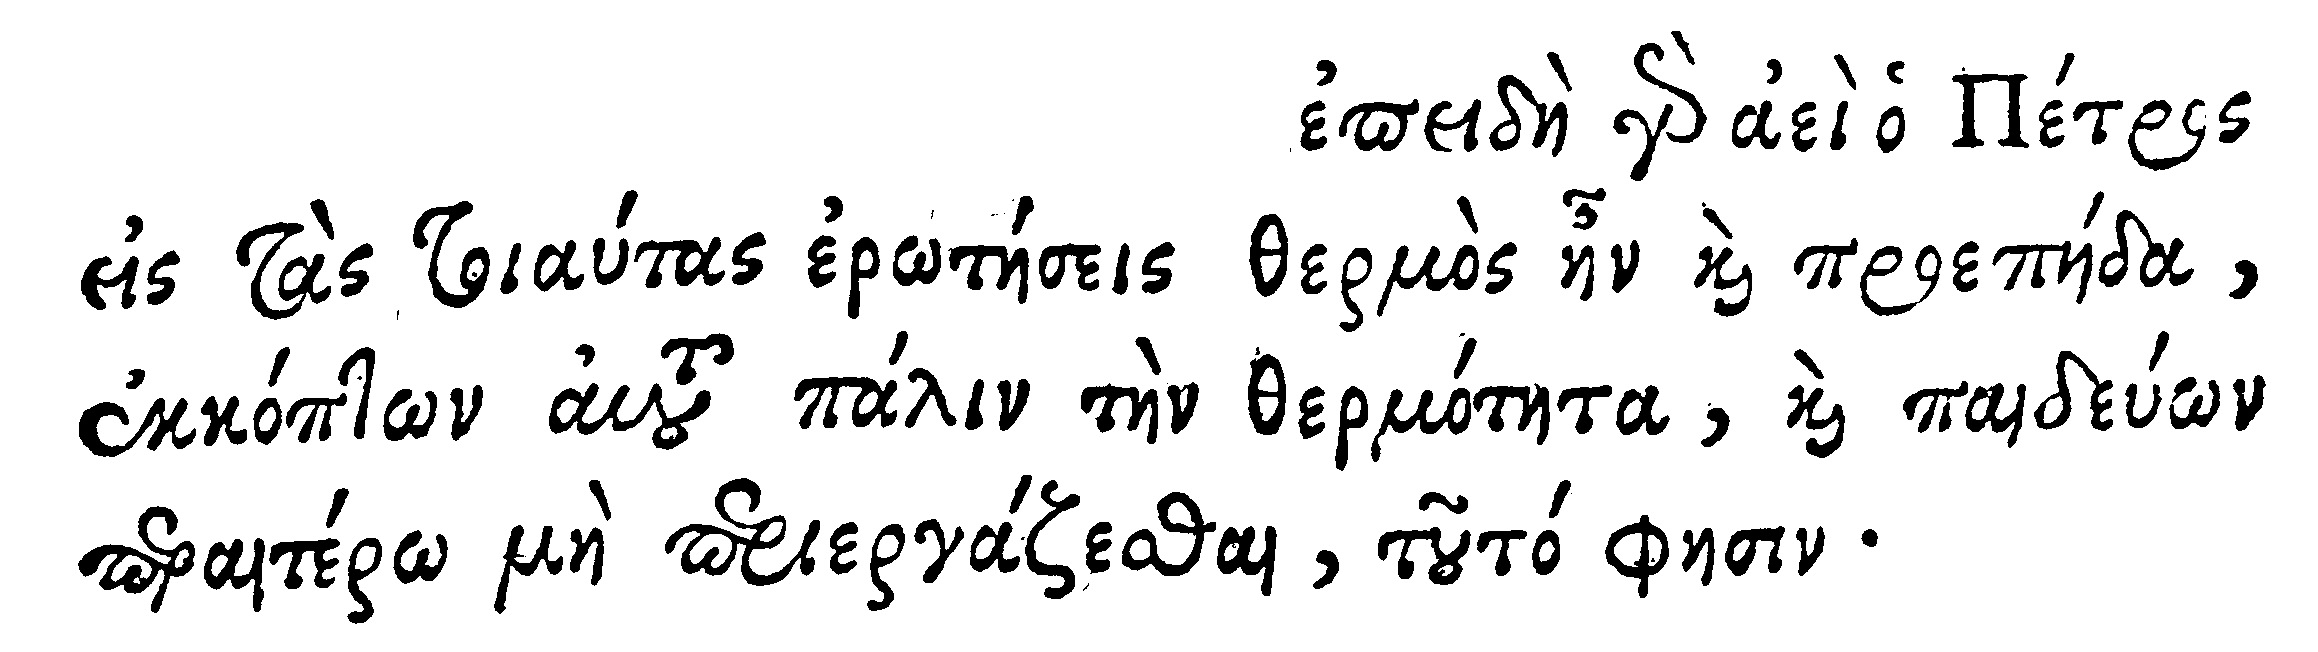 ἐπειδὴ γὰρ ἀεὶ ὁ Πέτρος
εἰς τὰς τοιαύτας ἐρωτήσεις θερμὸς ἦν καὶ προεπήδα,
ἐκκόπτων αὐτοῦ πάλιν τὴν θερμότητα, καὶ παιδεύων
περαιτέρω μὴ περιεργάζεσθαι, τοῦτό φησιν.